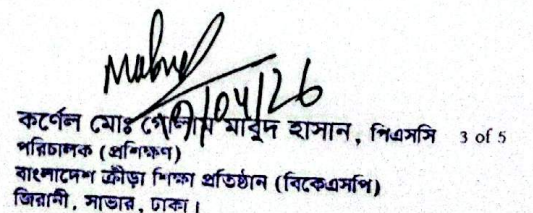 07/04/26
কর্ণেল মোঃ গোলাম মাবুদ হাসান, পিএসসি 3 of 5
পরিচালক (প্রশিক্ষণ)
বাংলাদেশ ক্রীড়া শিক্ষা প্রতিষ্ঠান (বিকেএসপি)
জিরানী, সাভার, ঢাকা।